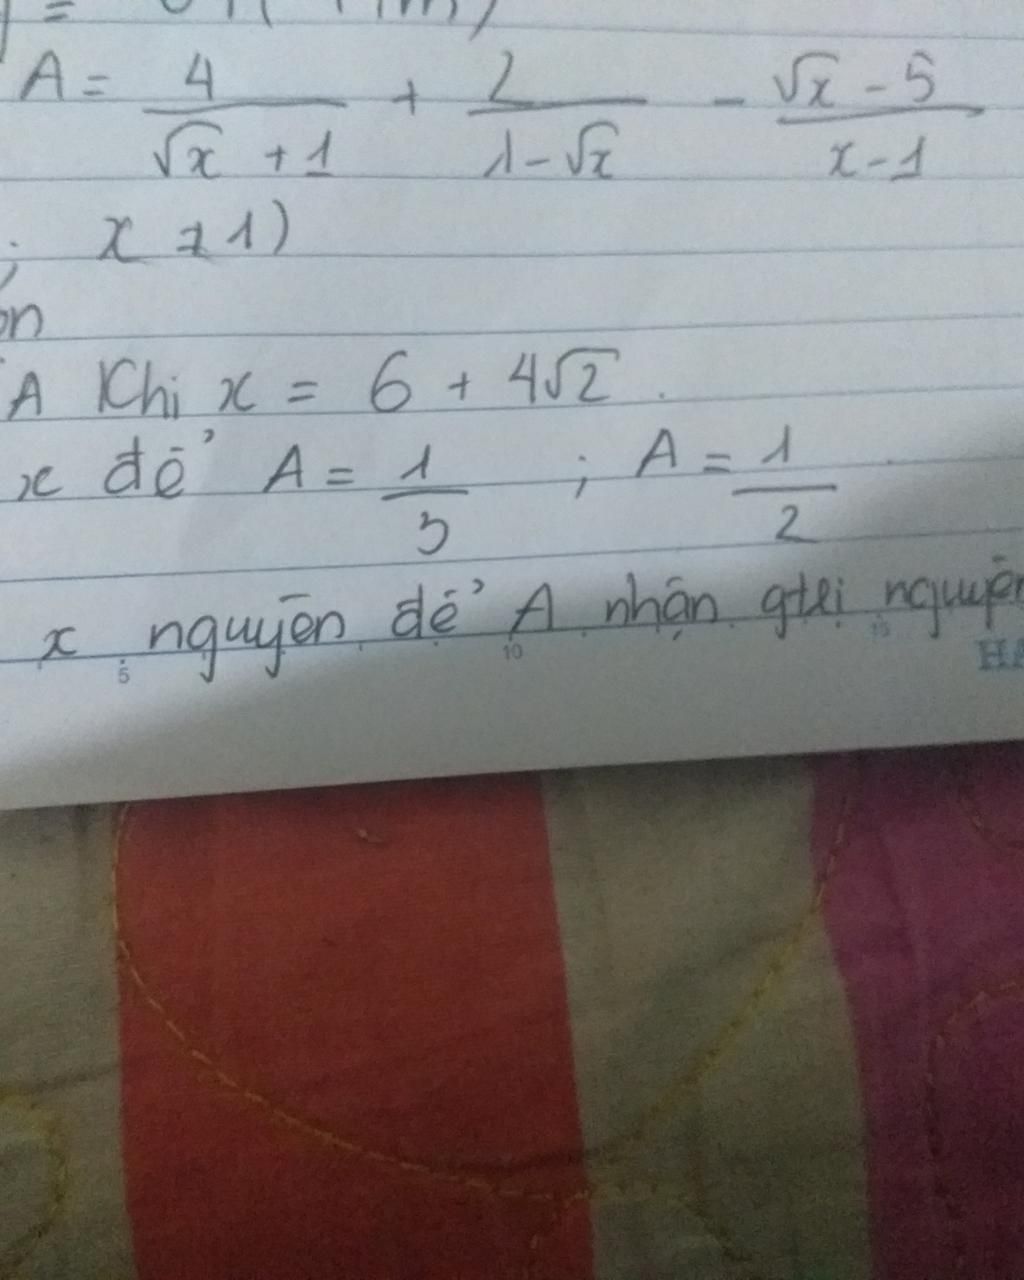 A = 4/(√x + 1) + 2/(1 - √x) - (√x - 5)/(x - 1)
; x ≠ 1)
ọn
A Khi x = 6 + 4√2 .
x để A = 1/3 ; A = 1/2
x nguyên để A nhận gtrị nguyên
5 10 15 HA